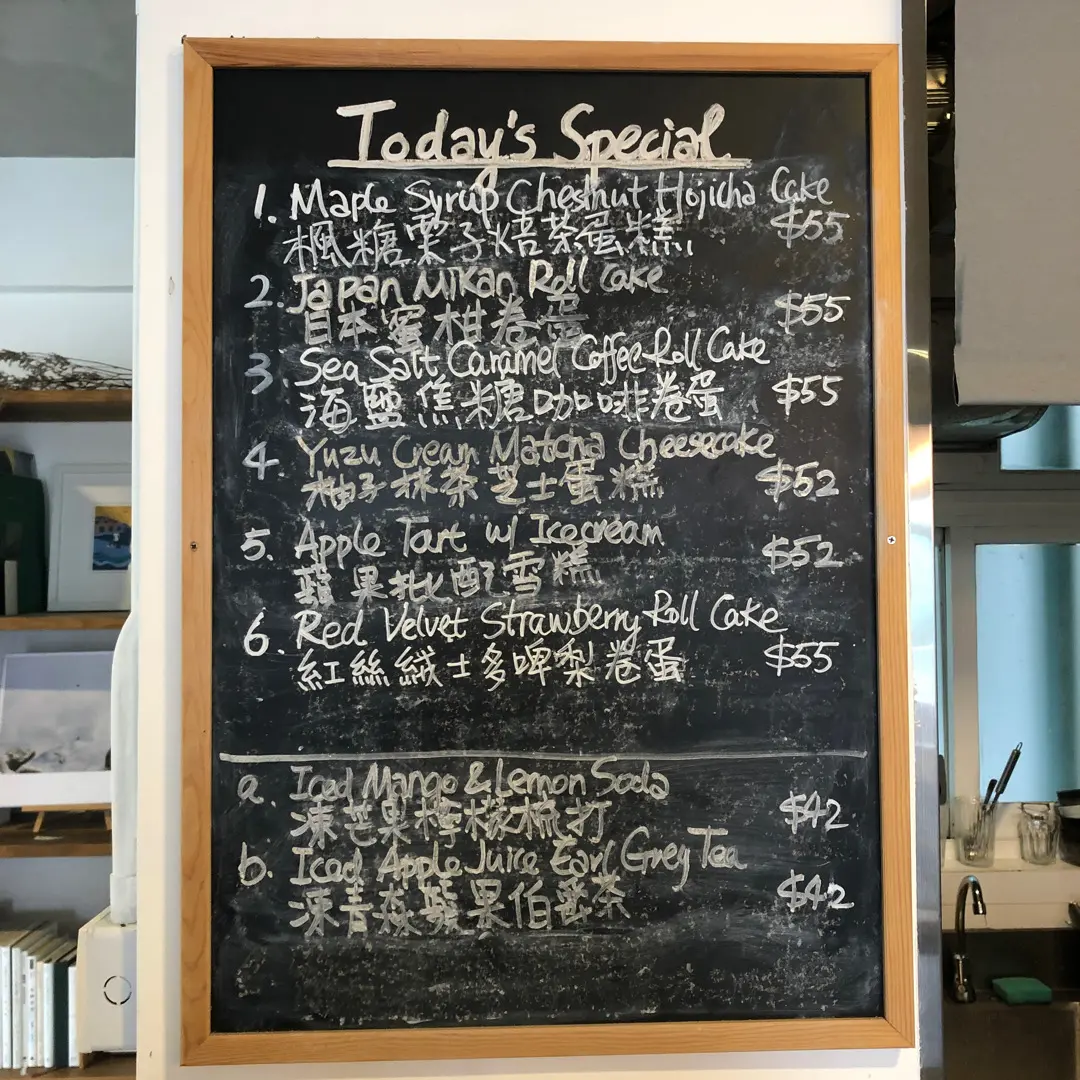 Today's Special
1. Maple Syrup Chestnut Hojicha Cake
楓糖栗子焙茶蛋糕 $55
2. Japan Mikan Roll Cake
日本蜜柑卷蛋 $55
3. Sea Salt Caramel Coffee Roll Cake
海鹽焦糖咖啡卷蛋 $55
4. Yuzu Cream Matcha Cheesecake
柚子抹茶芝士蛋糕 $52
5. Apple Tart w/ Icecream $52
蘋果批配雪糕
6. Red Velvet Strawberry Roll Cake
紅絲絨士多啤梨卷蛋 $55
a. Iced Mango & Lemon Soda
凍芒果檸檬梳打 $42
b. Iced Apple Juice Earl Grey Tea
凍青森蘋果伯爵茶 $42